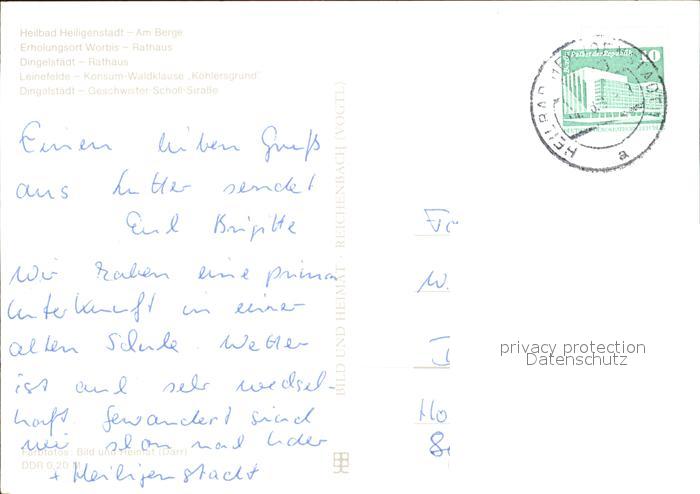 Heilbad Heiligenstadt – Am Berge
Erholungsort Worbis – Rathaus
Dingelstädt – Rathaus
Leinefelde – Konsum-Waldklause „Köhlersgrund“
Dingelstädt – Geschwister-Scholl-Straße
Einen lieben Gruß
aus Lutter sendet
Eure Brigitte
Wir haben eine prima
Unterkunft in einer
alten Schule. Wetter
ist auch sehr wechsel-
haft. Gewandert sind
wir schon nach Uder
+ Heiligenstadt
Farbfotos: Bild und Heimat (Darr)
DDR 0,20 M
BILD UND HEIMAT · REICHENBACH (VOGTL)
Palast der Republik
10
HEILBAD HEILIGENSTADT 1
a
W.
Ho
privacy protection
Datenschutz